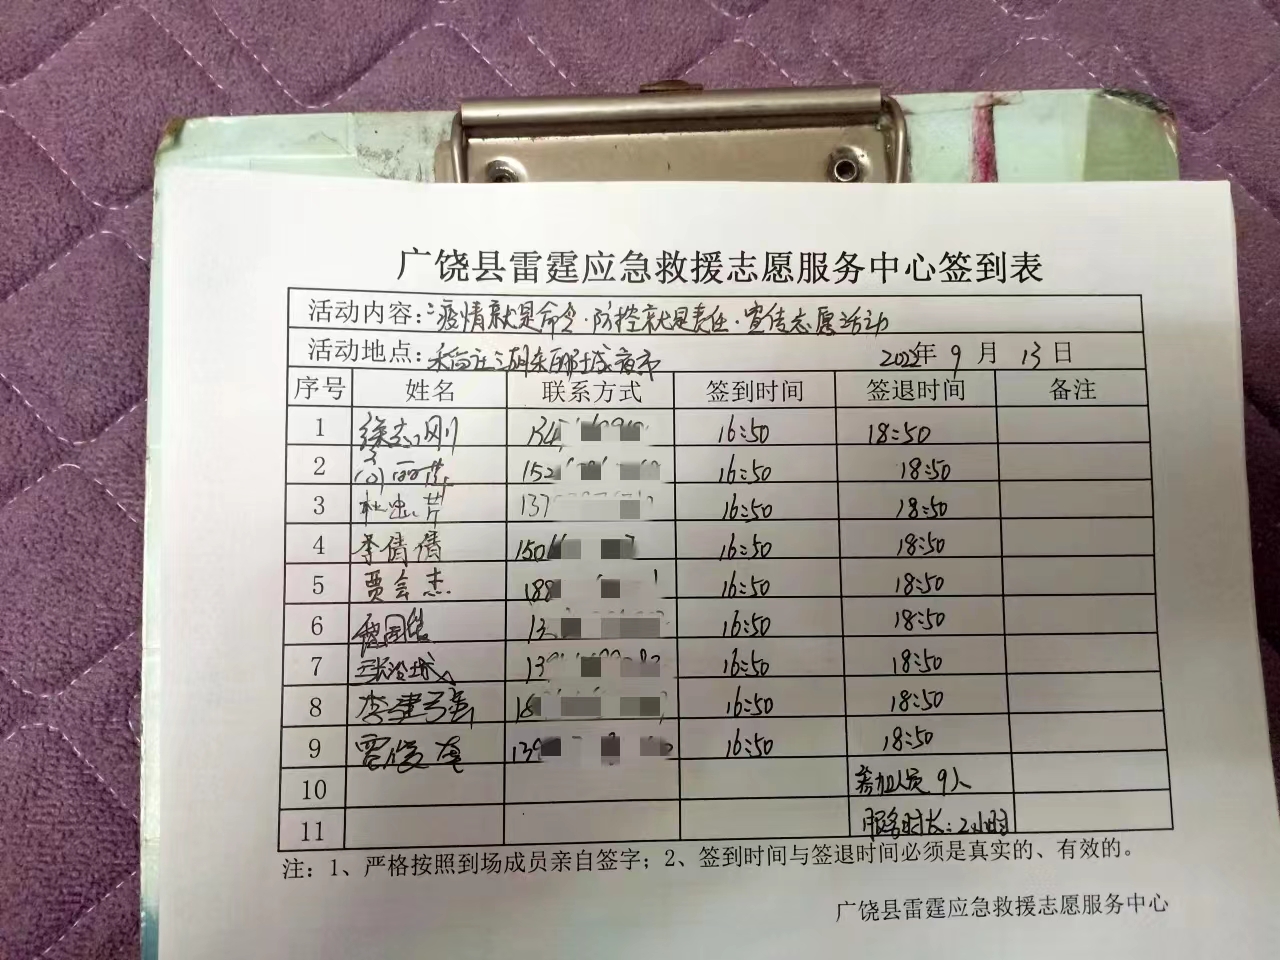 广饶县雷霆应急救援志愿服务中心签到表
活动内容：疫情就是命令·防控就是责任·宣传志愿活动
活动地点：稻庄 夜市 2022年 9 月 13 日
序号 姓名 联系方式 签到时间 签退时间 备注
1 徐志刚 16:50 18:50
2 16:50 18:50
3 16:50 18:50
4 李倩倩 16:50 18:50
5 贾会杰 16:50 18:50
6 16:50 18:50
7 16:50 18:50
8 李建 16:50 18:50
9 16:50 18:50
10 参加人员 9人
11 服务时长：2小时
注：1、严格按照到场成员亲自签字；2、签到时间与签退时间必须是真实的、有效的。
广饶县雷霆应急救援志愿服务中心